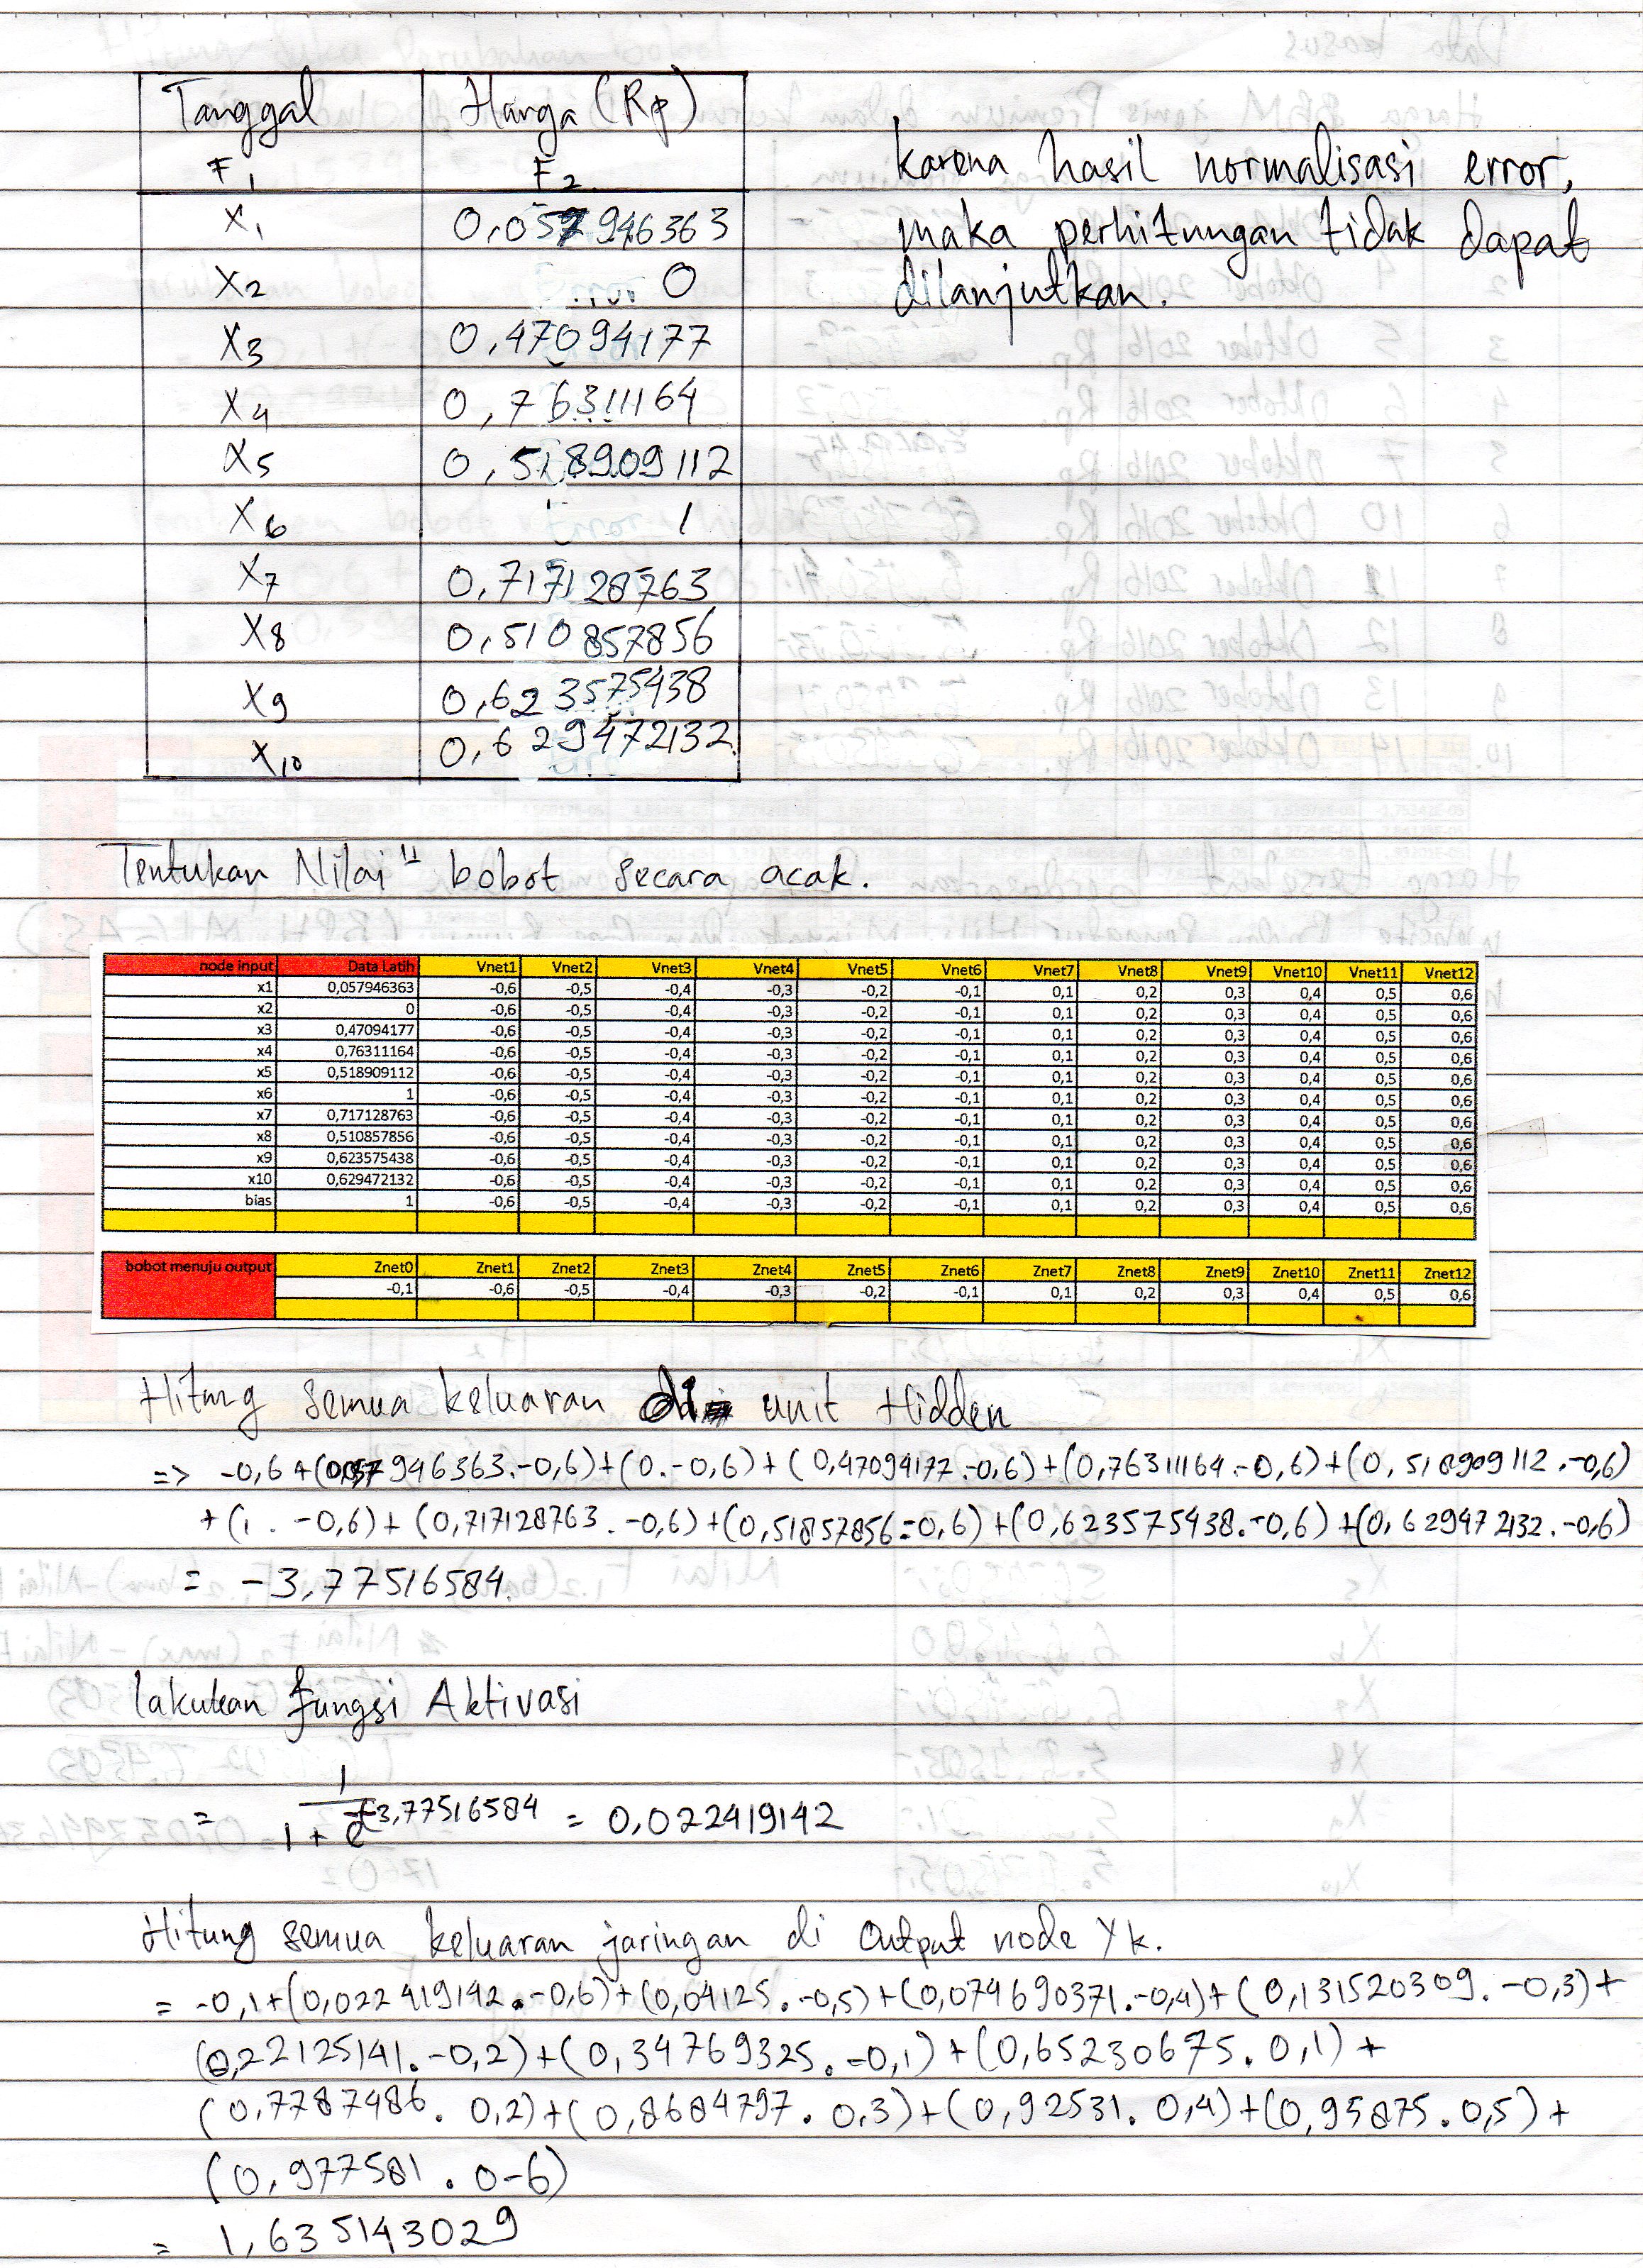 Tanggal Harga (Rp)
F1 F2
X1 0,057946363
X2 0
X3 0,47094177
X4 0,76311164
X5 0,518909112
X6 1
X7 0,717128763
X8 0,510857856
X9 0,623575438
X10 0,629472132
karena hasil normalisasi error,
maka perhitungan tidak dapat
dilanjutkan.
Tentukan Nilai" bobot secara acak.
node input Data Latih Vnet1 Vnet2 Vnet3 Vnet4 Vnet5 Vnet6 Vnet7 Vnet8 Vnet9 Vnet10 Vnet11 Vnet12
x1 0,057946363 -0,6 -0,5 -0,4 -0,3 -0,2 -0,1 0,1 0,2 0,3 0,4 0,5 0,6
x2 0 -0,6 -0,5 -0,4 -0,3 -0,2 -0,1 0,1 0,2 0,3 0,4 0,5 0,6
x3 0,47094177 -0,6 -0,5 -0,4 -0,3 -0,2 -0,1 0,1 0,2 0,3 0,4 0,5 0,6
x4 0,76311164 -0,6 -0,5 -0,4 -0,3 -0,2 -0,1 0,1 0,2 0,3 0,4 0,5 0,6
x5 0,518909112 -0,6 -0,5 -0,4 -0,3 -0,2 -0,1 0,1 0,2 0,3 0,4 0,5 0,6
x6 1 -0,6 -0,5 -0,4 -0,3 -0,2 -0,1 0,1 0,2 0,3 0,4 0,5 0,6
x7 0,717128763 -0,6 -0,5 -0,4 -0,3 -0,2 -0,1 0,1 0,2 0,3 0,4 0,5 0,6
x8 0,510857856 -0,6 -0,5 -0,4 -0,3 -0,2 -0,1 0,1 0,2 0,3 0,4 0,5 0,6
x9 0,623575438 -0,6 -0,5 -0,4 -0,3 -0,2 -0,1 0,1 0,2 0,3 0,4 0,5 0,6
x10 0,629472132 -0,6 -0,5 -0,4 -0,3 -0,2 -0,1 0,1 0,2 0,3 0,4 0,5 0,6
bias 1 -0,6 -0,5 -0,4 -0,3 -0,2 -0,1 0,1 0,2 0,3 0,4 0,5 0,6
bobot menuju output Znet0 Znet1 Znet2 Znet3 Znet4 Znet5 Znet6 Znet7 Znet8 Znet9 Znet10 Znet11 Znet12
-0,1 -0,6 -0,5 -0,4 -0,3 -0,2 -0,1 0,1 0,2 0,3 0,4 0,5 0,6
Hitung semua keluaran di unit Hidden
=> -0,6+(0,057946363.-0,6)+(0.-0,6)+(0,47094177.-0,6)+(0,76311164.-0,6)+(0,518909112.-0,6)
+(1.-0,6)+(0,717128763.-0,6)+(0,51857856=0,6)+(0,623575438.-0,6)+(0,629472132.-0,6)
= -3,77516584.
lakukan fungsi Aktivasi
1
= 1+e-3,77516584 = 0,022419142
Hitung semua keluaran jaringan di Output node Yk.
= -0,1+(0,022419142.-0,6)+(0,04125.-0,5)+(0,074690371.-0,4)+(0,131520309.-0,3)+
(0,22125141.-0,2)+(0,34769325.-0,1)+(0,65230675.0,1)+
(0,7787486.0,2)+(0,8684797.0,3)+(0,92531.0,4)+(0,95875.0,5)+
(0,977581.0-6)
= 1,635143029